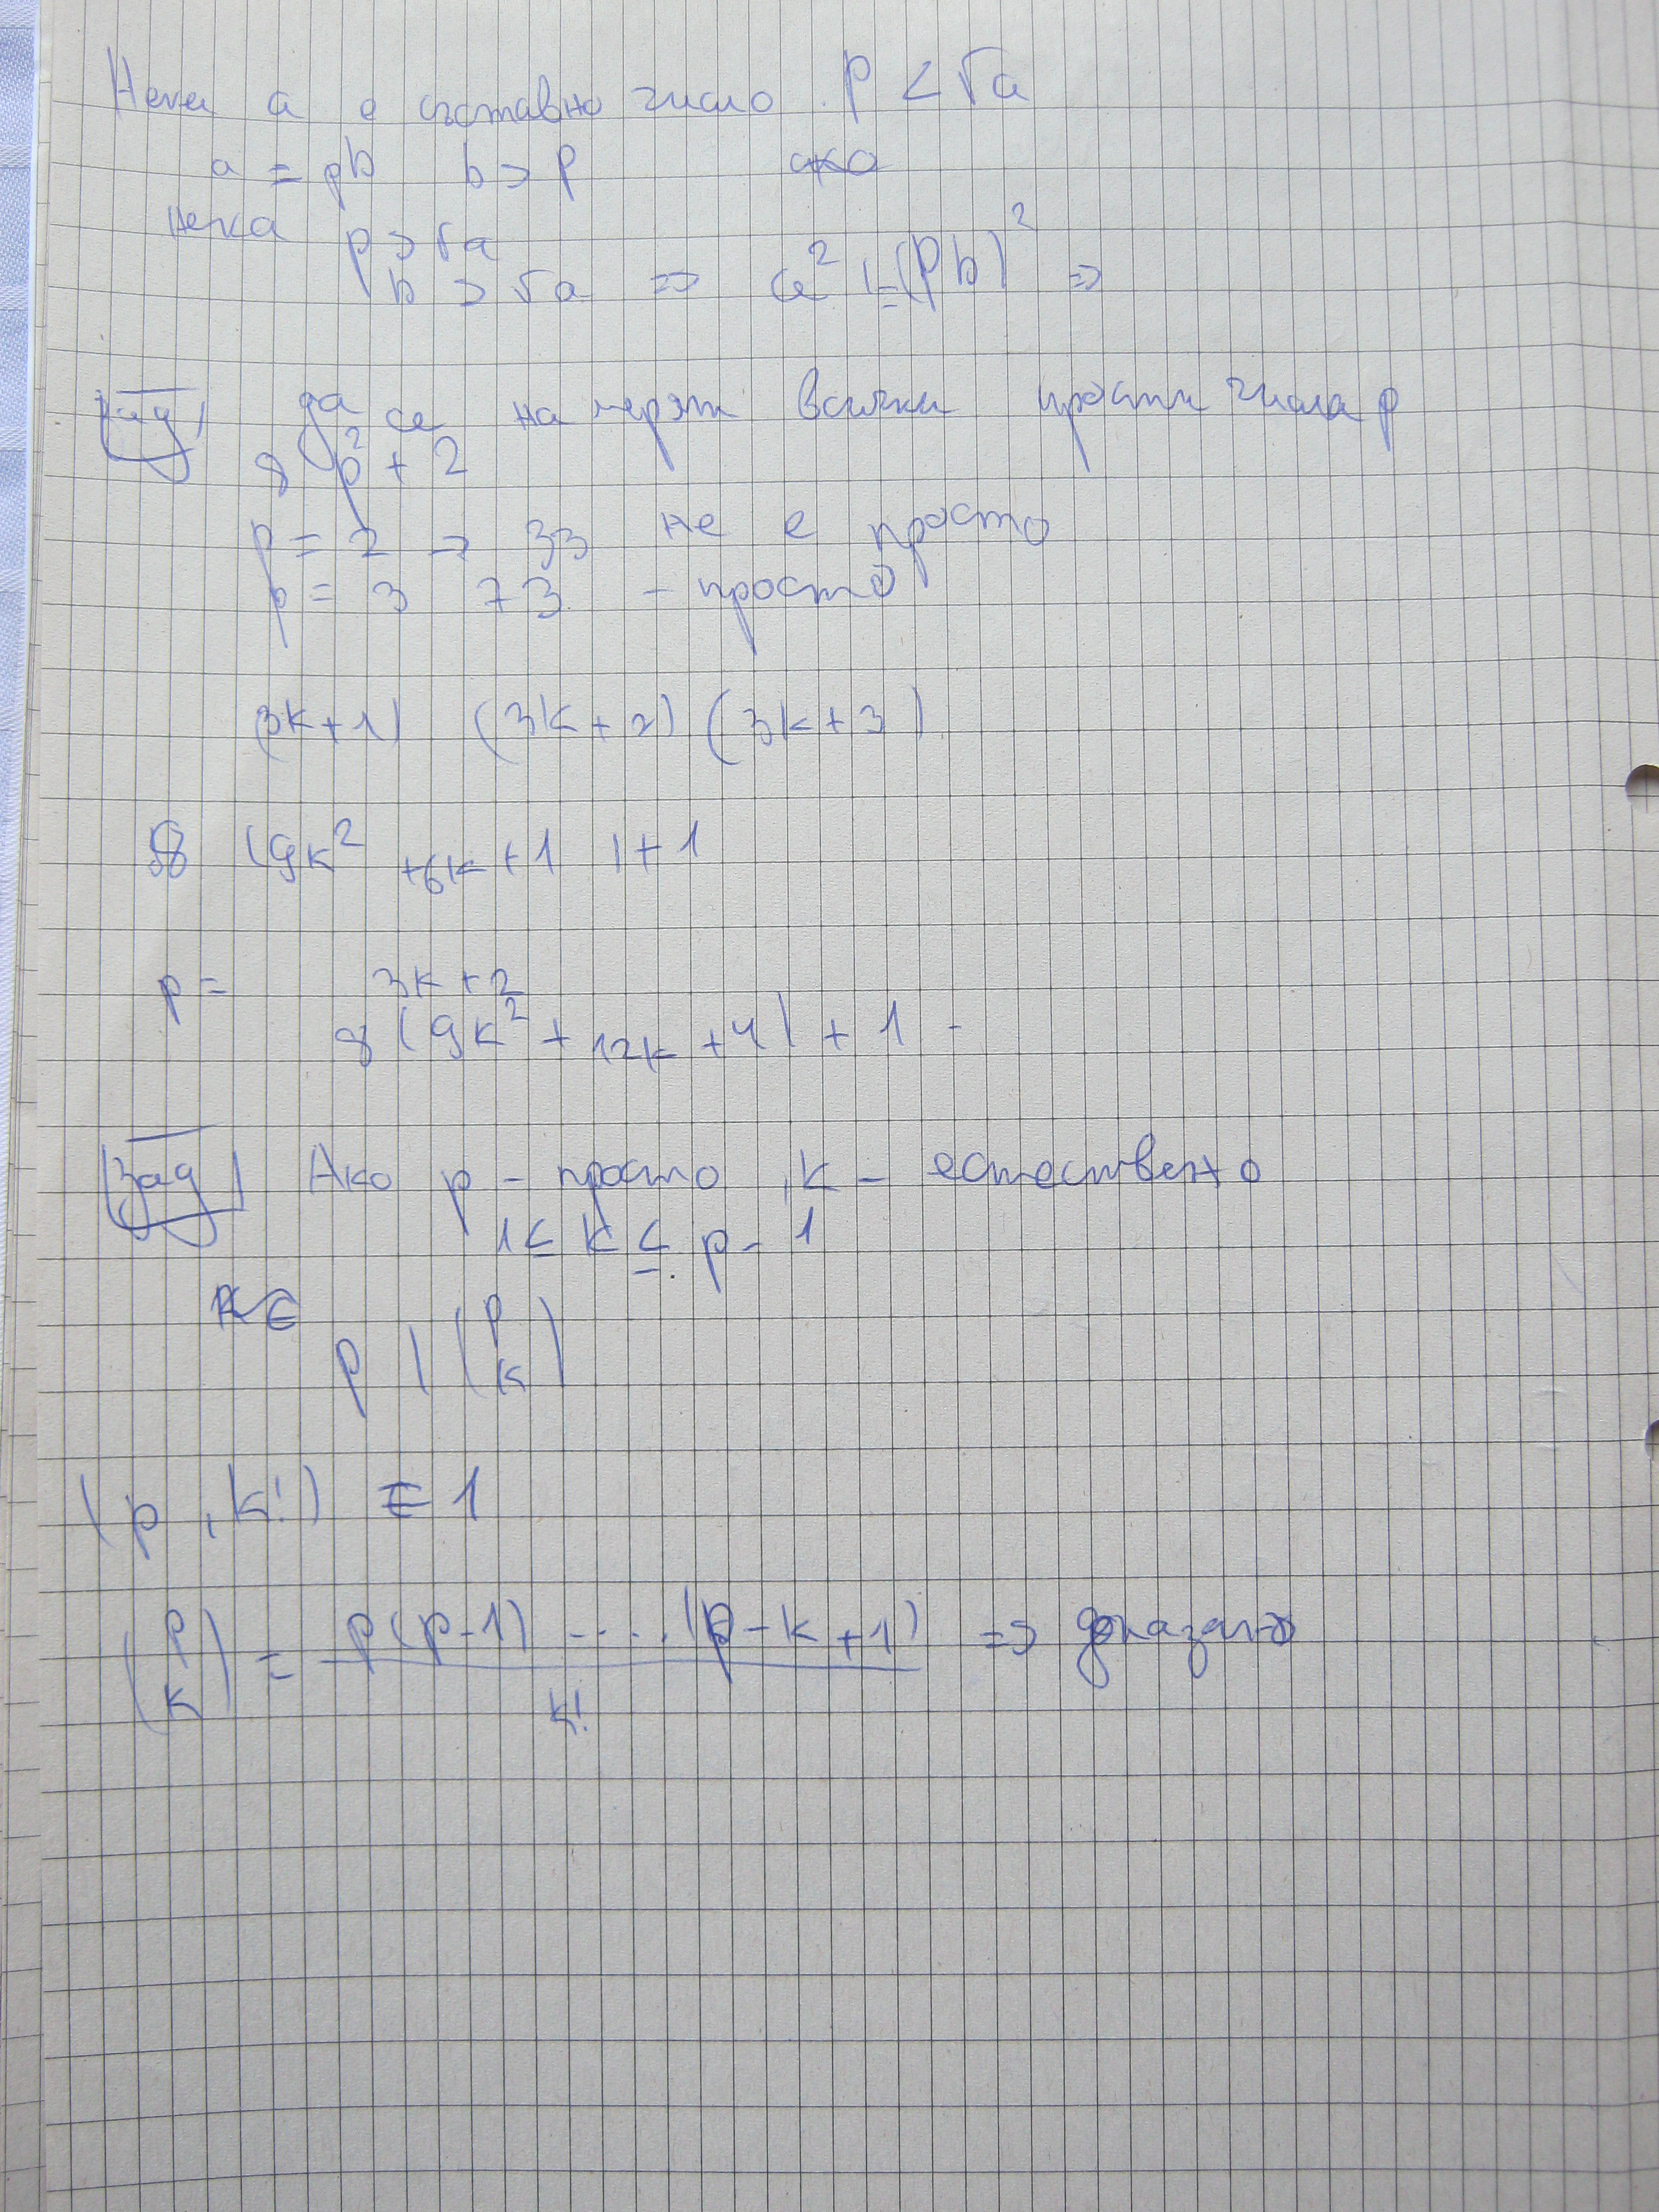 Нека a е съставно число p < √a
a = pb b > p ако
нека p > √a
b > √a => a² = (pb)² =>
зад да се намерят всички прости числа p
8p² + 2
p = 2 → 33 не е просто
p = 3 73 - просто
(3k+1) (3k+2) (3k+3)
8 (9k² +6k +1) +1
p = 3k+2
8 (9k² + 12k + 4) + 1 -
Зад Ако p - просто, k - естествено
1 ≤ k ≤ p - 1
p | (p k)
(p, k!) = 1
(p k) = p(p-1) .... (p-k+1) / k! => доказано